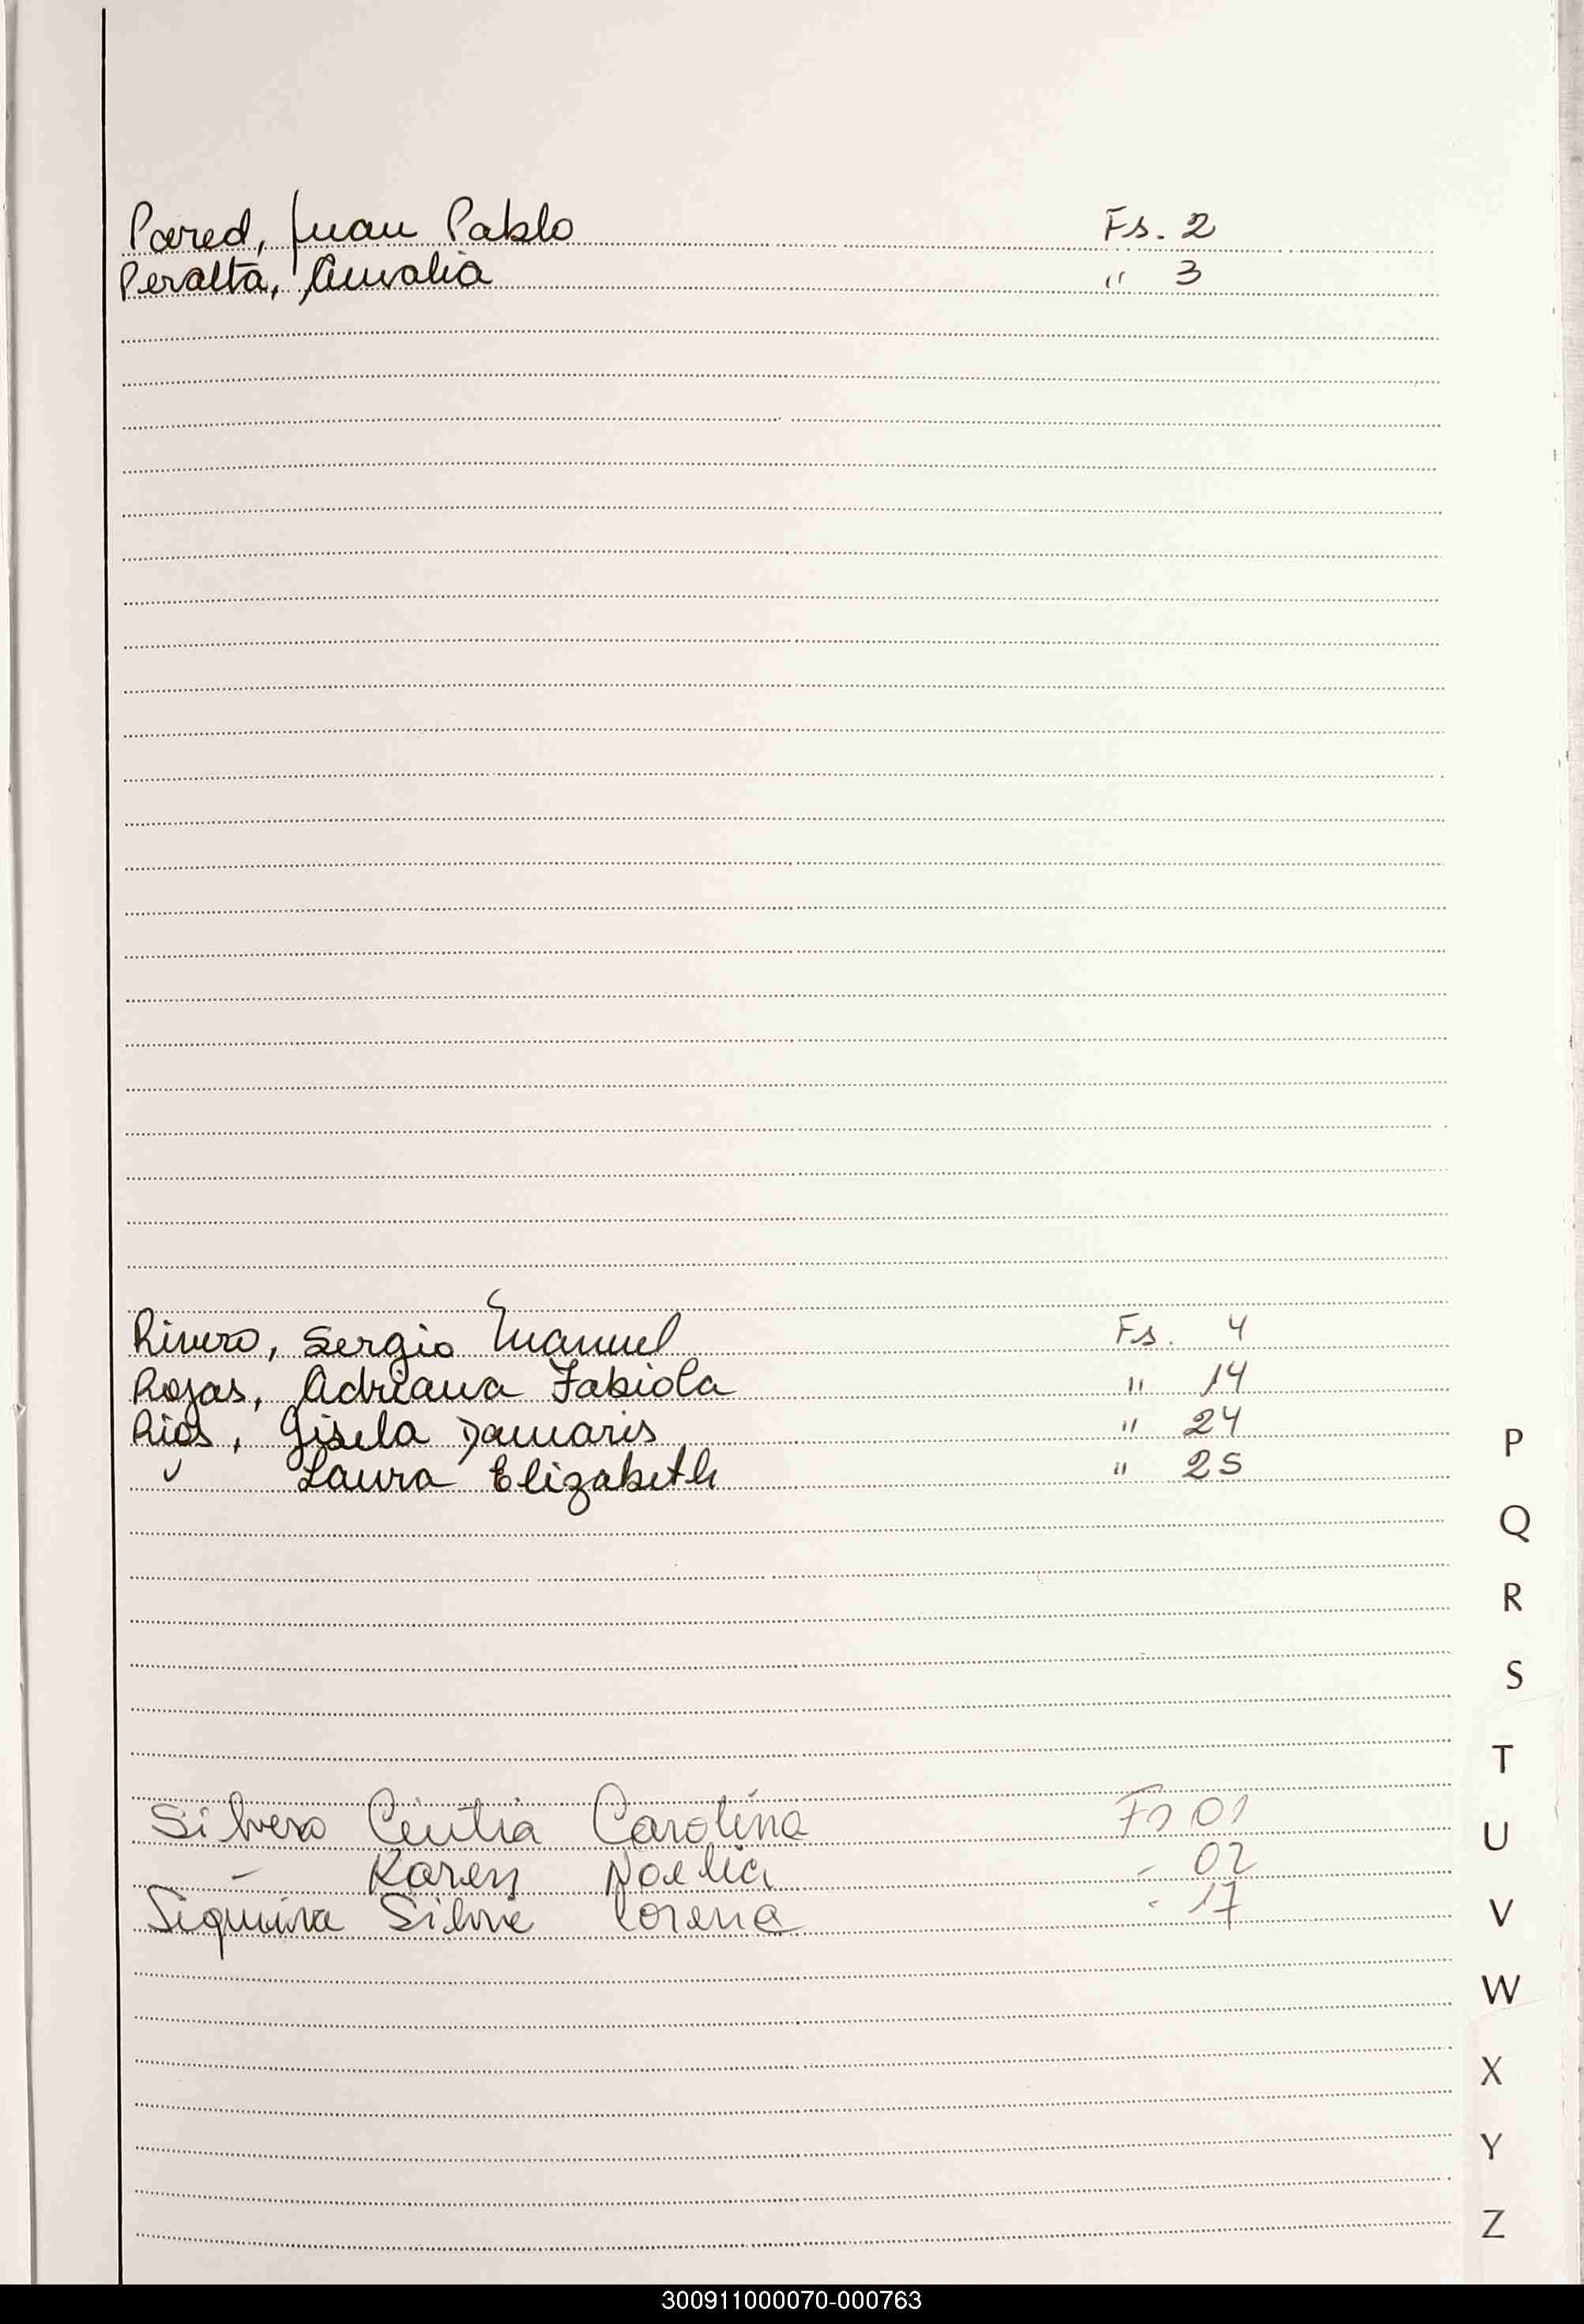 Pared, Juan Pablo Fs. 2
Peralta, Amalia " 3
Rivero, Sergio Emanuel Fs. 4
Rojas, Adriana Fabiola " 14
Ríos, Gisela Damaris " 24
" Laura Elizabeth " 25
Silvero Cintia Carolina Fs 01
- Karen Noelia - 02
Siqueira Silvia Lorena - 17
P
Q
R
S
T
U
V
W
X
Y
Z
300911000070-000763